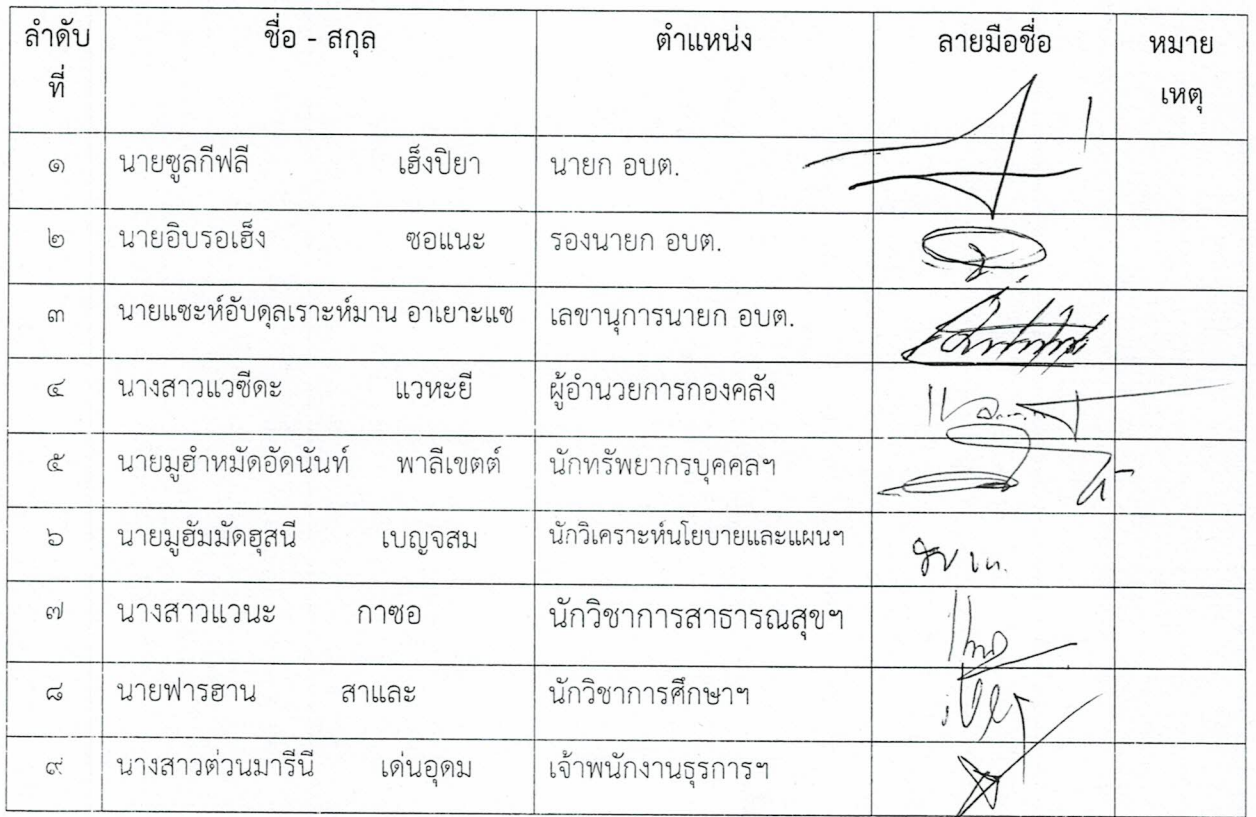 ลำดับที่ ชื่อ - สกุล ตำแหน่ง ลายมือชื่อ หมายเหตุ
๑ นายซูลกีฟลี เฮ็งปิยา นายก อบต.
๒ นายอิบรอเฮ็ง ซอแนะ รองนายก อบต.
๓ นายแซะห์อับดุลเราะห์มาน อาเยาะแซ เลขานุการนายก อบต.
๔ นางสาวแวซีดะ แวหะยี ผู้อำนวยการกองคลัง
๕ นายมูฮำหมัดอัดนันท์ พาลีเขตต์ นักทรัพยากรบุคคลฯ
๖ นายมูฮัมมัดฮุสนี เบญจสม นักวิเคราะห์นโยบายและแผนฯ
๗ นางสาวแวนะ กาซอ นักวิชาการสาธารณสุขฯ
๘ นายฟารฮาน สาและ นักวิชาการศึกษาฯ
๙ นางสาวต่วนมารีนี เด่นอุดม เจ้าพนักงานธุรการฯ